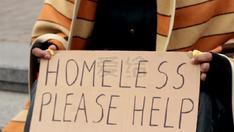 HOMELESS
PLEASE HELP